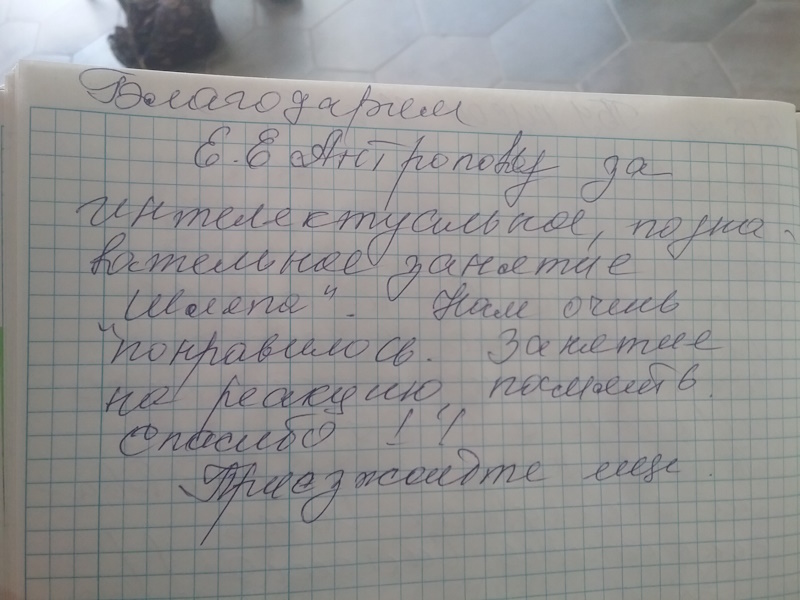 Благодарим
Е.Е Антропову за
интелектуальное, позна-
вательное занятие
"Шляпа". Нам очень
понравилось. Занятие
на реакцию, память.
Спасибо !!
Приезжайте еще.